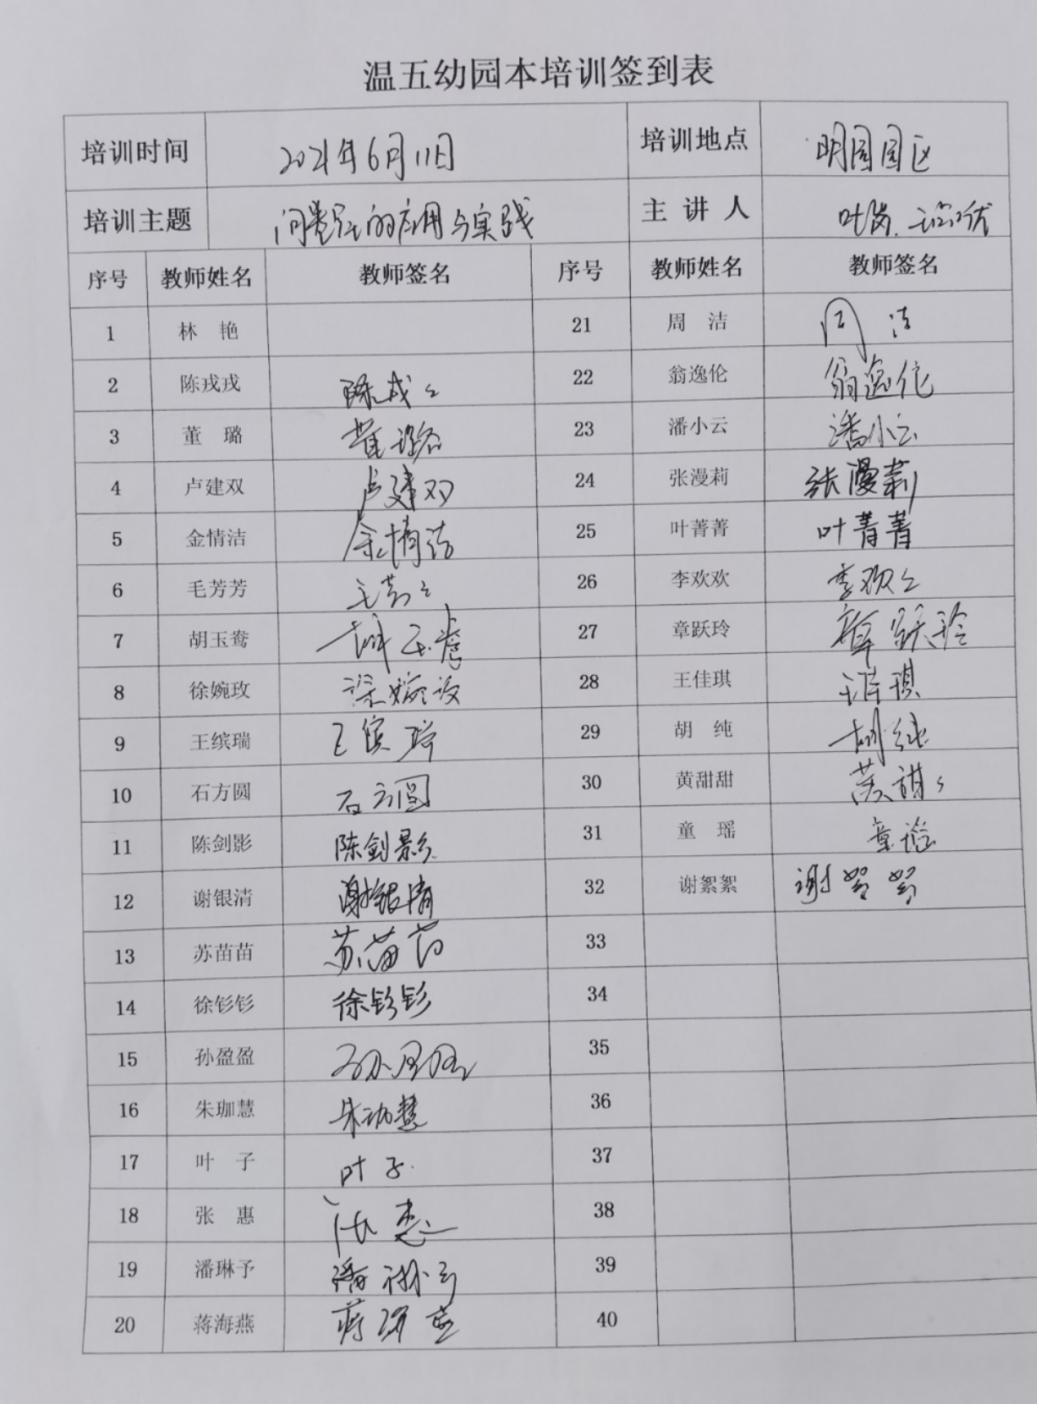 温五幼园本培训签到表
培训时间 2021年6月11日 培训地点 明园园区
培训主题 问卷法的应用与实践 主讲人
序号 教师姓名 教师签名 序号 教师姓名 教师签名
1 林艳 21 周洁 周洁
2 陈戎戎 陈戎々 22 翁逸伦 翁逸伦
3 董璐 董璐 23 潘小云 潘小云
4 卢建双 卢建双 24 张漫莉 张漫莉
5 金情洁 金情洁 25 叶菁菁 叶菁菁
6 毛芳芳 毛芳々 26 李欢欢 李欢々
7 胡玉鸯 胡玉鸯 27 章跃玲 章跃玲
8 徐婉玫 徐婉玫 28 王佳琪 王佳琪
9 王缤瑞 王缤瑞 29 胡纯 胡纯
10 石方圆 石方圆 30 黄甜甜 黄甜々
11 陈剑影 陈剑影 31 童瑶 童瑶
12 谢银清 谢银清 32 谢絮絮 谢絮絮
13 苏苗苗 苏苗苗 33
14 徐钐钐 徐钐钐 34
15 孙盈盈 孙盈盈 35
16 朱珈慧 朱珈慧 36
17 叶子 叶子 37
18 张惠 张惠 38
19 潘琳予 潘琳予 39
20 蒋海燕 蒋海燕 40